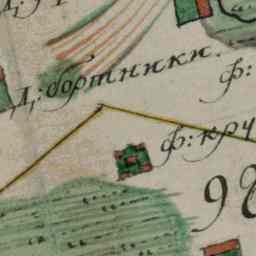 Д: бортники.
ф:
ф: кру
98